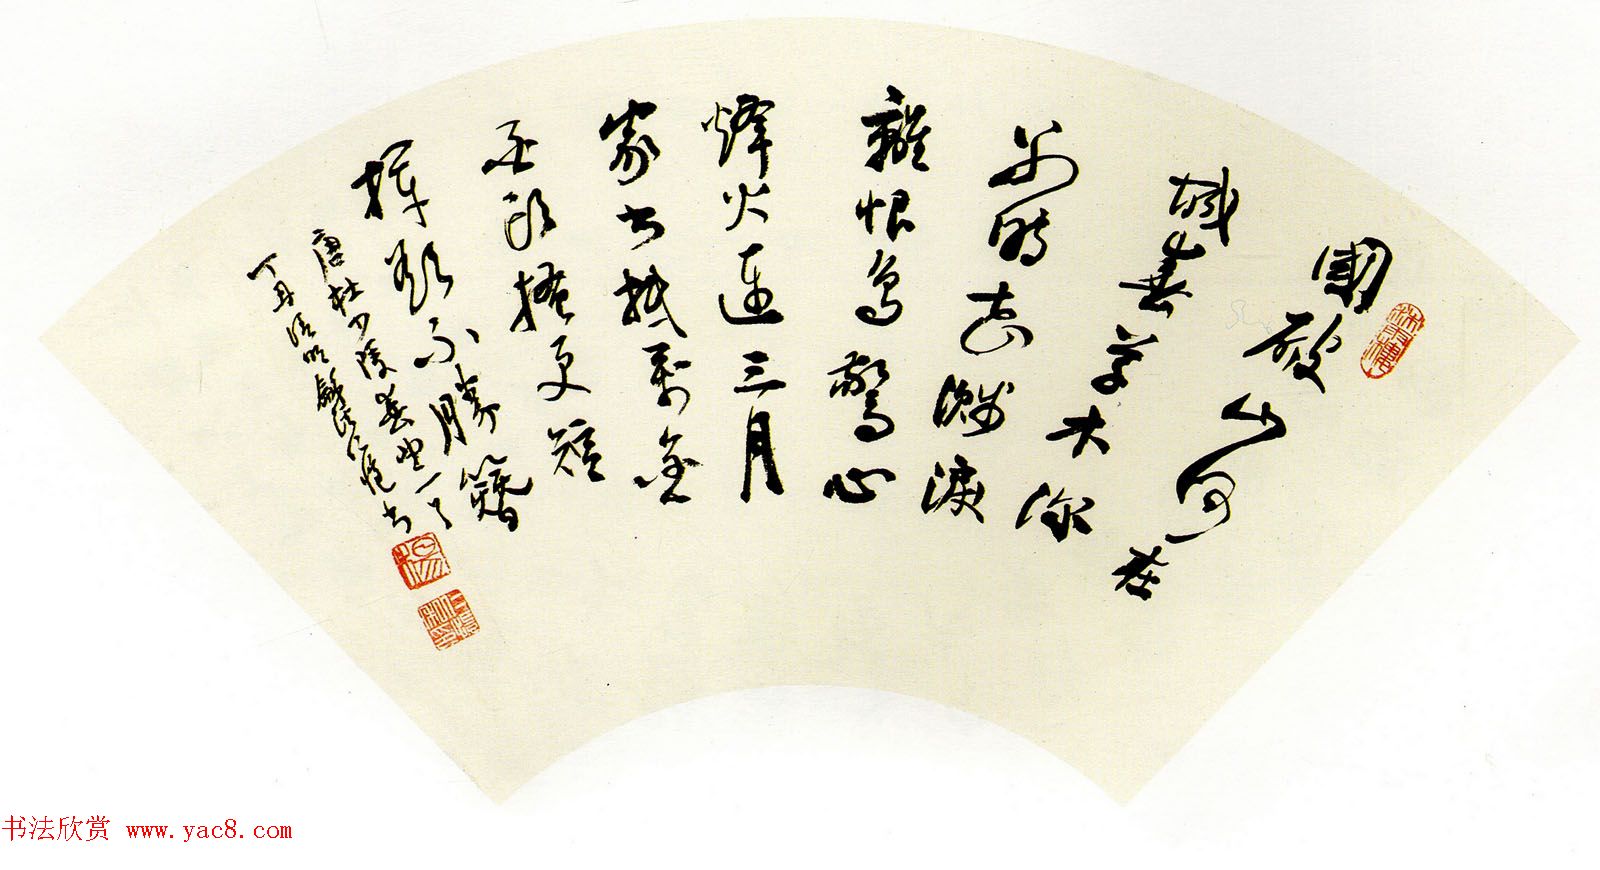 國破山河在
城春草木深
感時花濺淚
離恨鳥驚心
烽火連三月
家書抵萬金
白頭搔更短
渾欲不勝簪
唐杜少陵春望一首
丁丑清明 書
书法欣赏 www.yac8.com